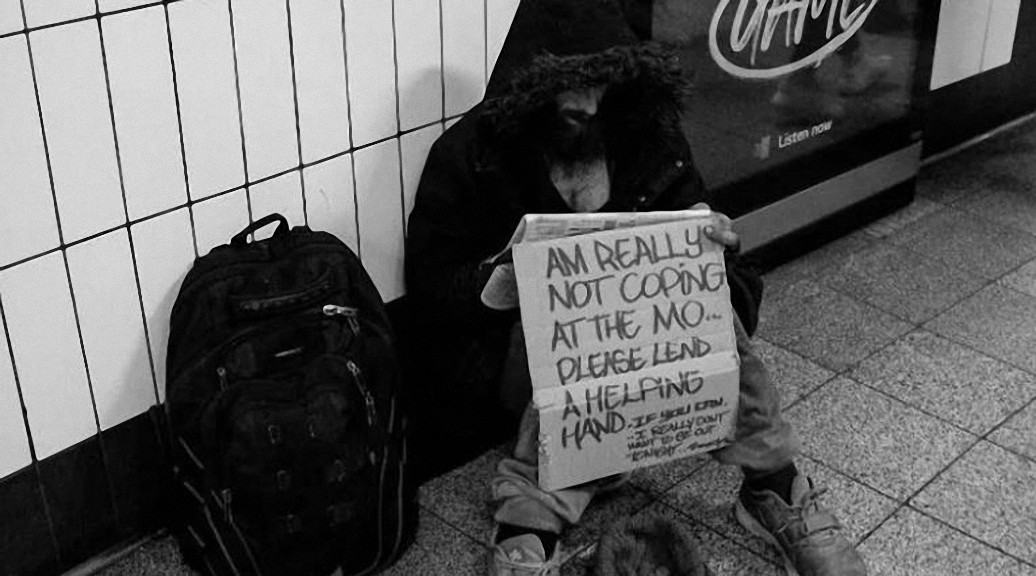 GAME
Listen now
AM REALLY
NOT COPING
AT THE MO...
PLEASE LEND
A HELPING
HAND. IF YOU CAN.
I REALLY DON'T
WANT TO BE OUT
TONIGHT